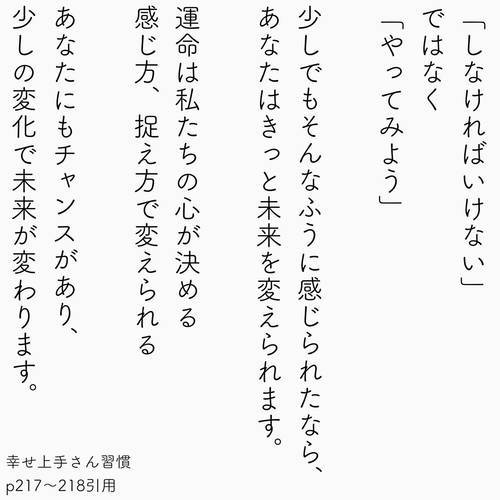 「しなければいけない」
ではなく
「やってみよう」
少しでもそんなふうに感じられたなら、
あなたはきっと未来を変えられます。
運命は私たちの心が決める
感じ方、捉え方で変えられる
あなたにもチャンスがあり、
少しの変化で未来が変わります。
幸せ上手さん習慣
p217～218引用